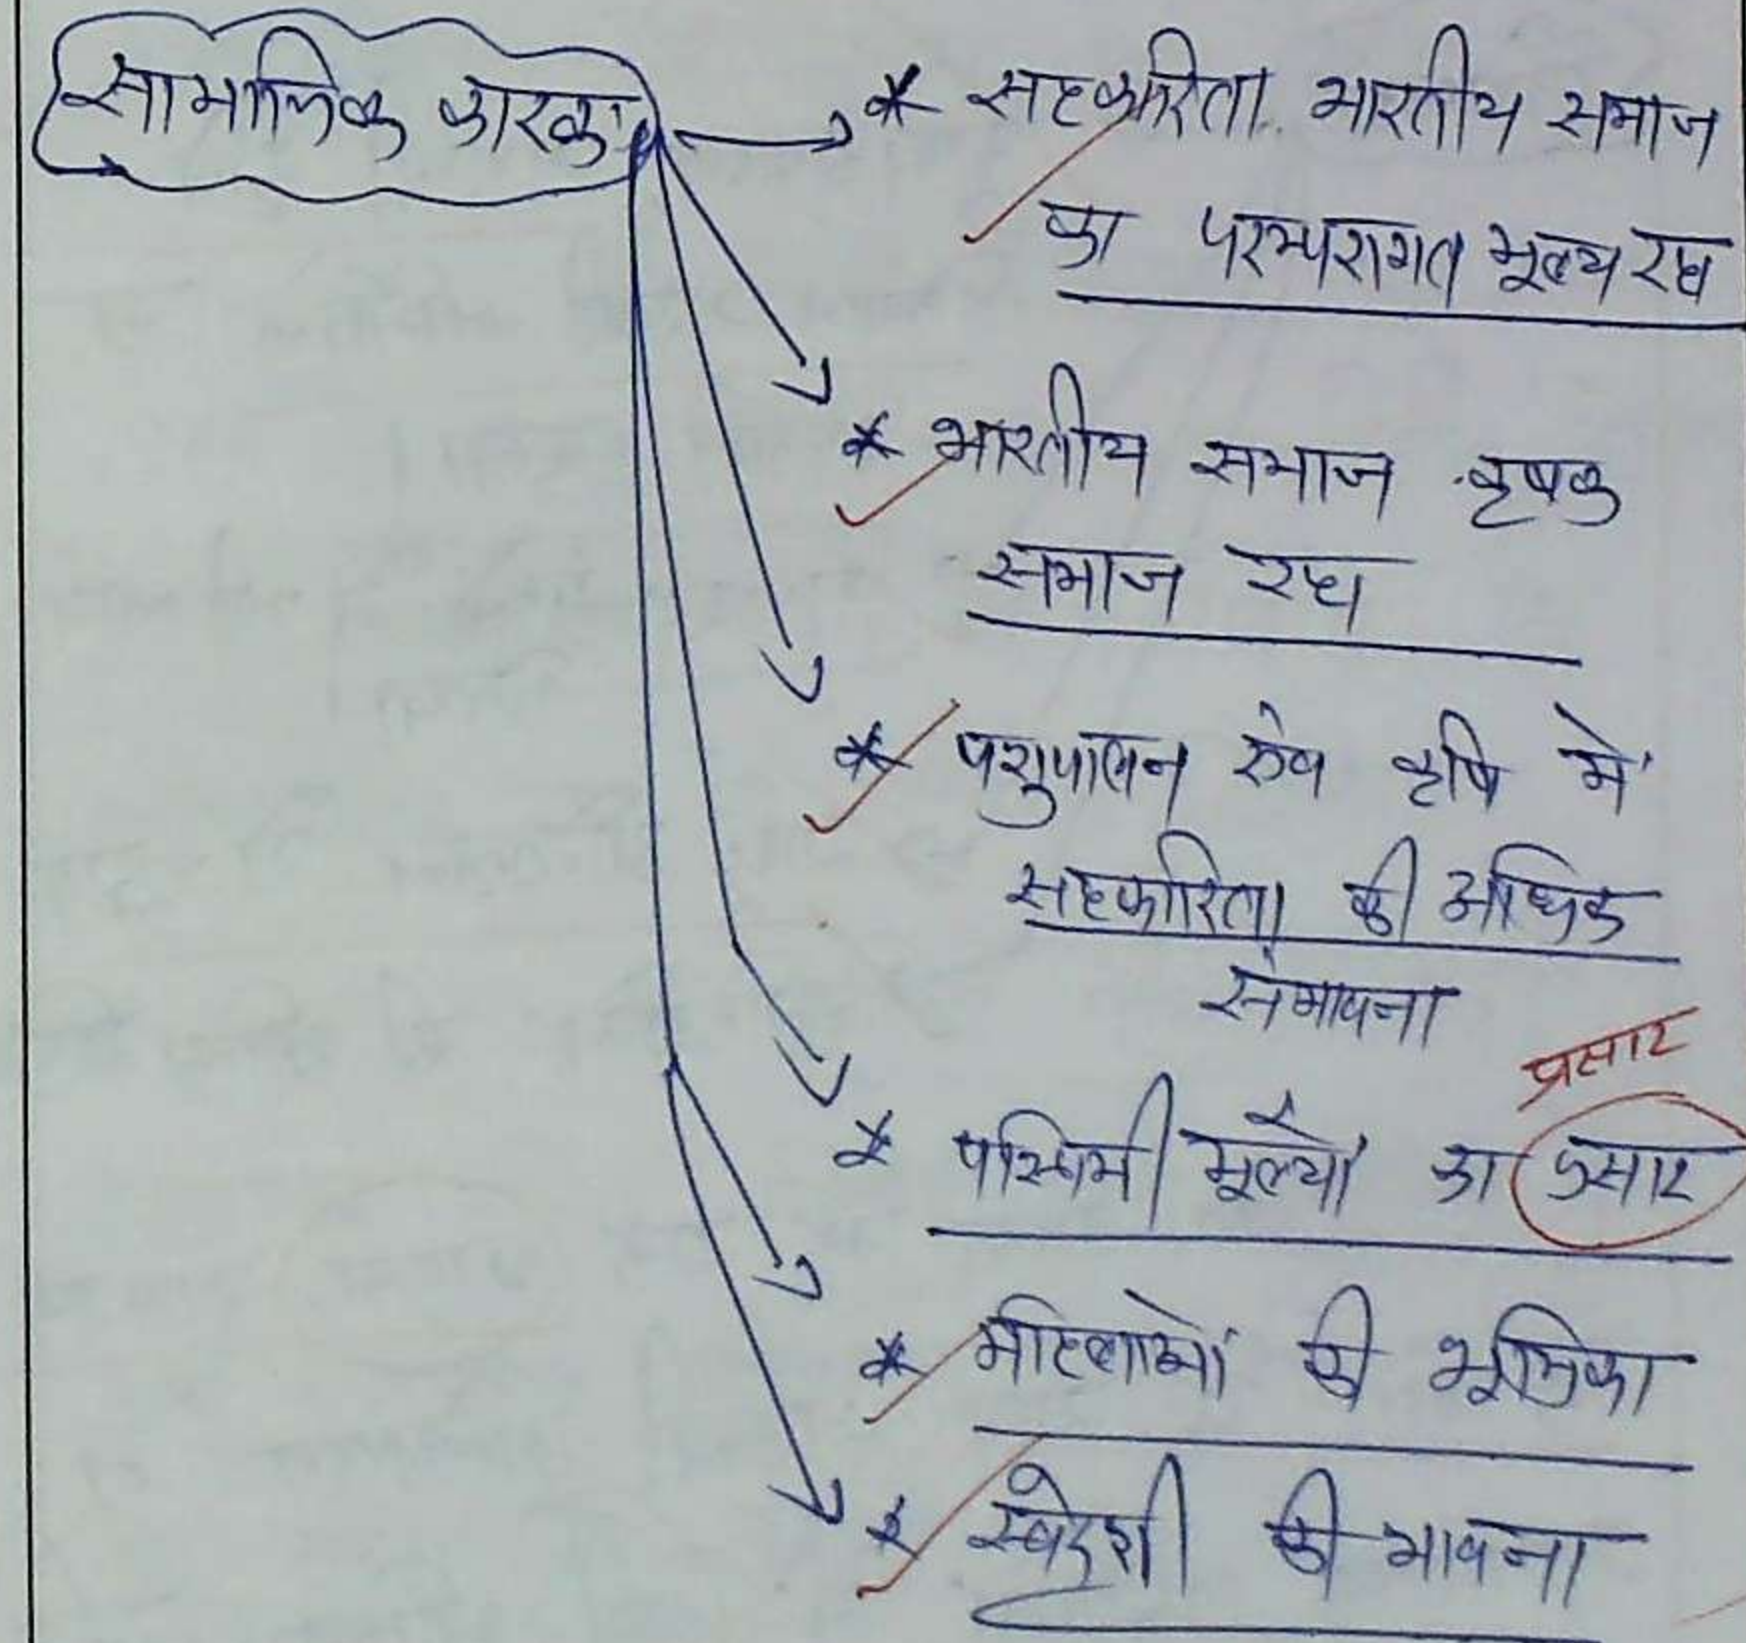 सामाजिक कारक
* सहकारिता भारतीय समाज
का परम्परागत मूल्य रहा
* भारतीय समाज कृषक
समाज रहा
* पशुपालन एंव कृषि में
सहकारिता की अधिक
संभावना
प्रसार
* पश्चिमी मूल्यों का प्रसार
* महिलाओं की भूमिका
* स्वेदशी की भावना